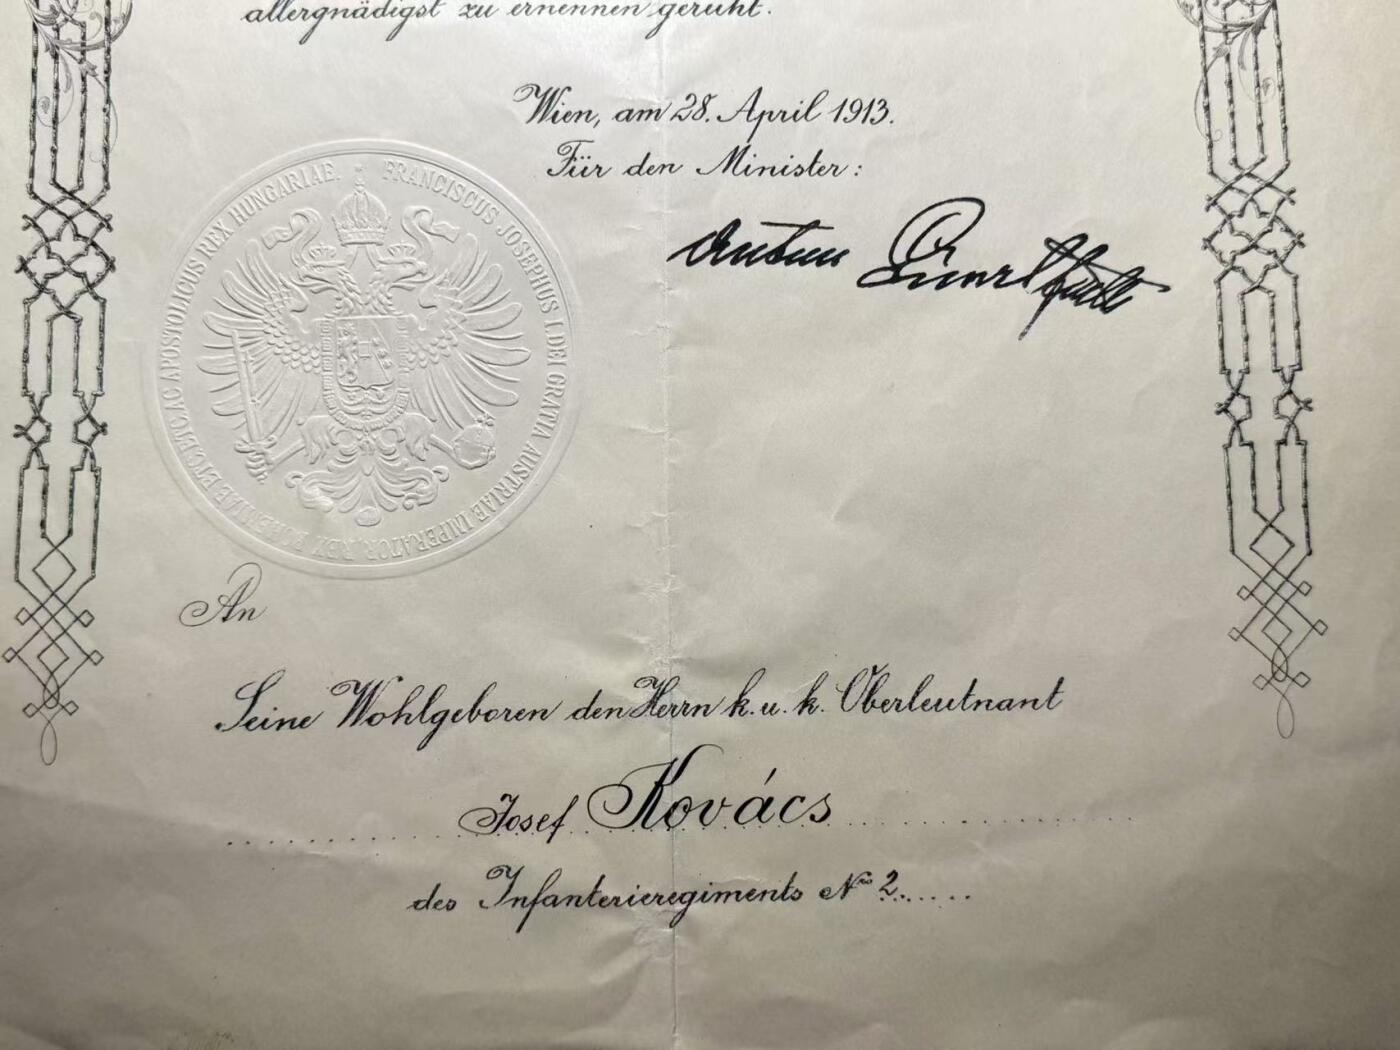 allergnädigst zu ernennen geruht.
Wien, am 28. April 1913.
Für den Minister:
FRANCISCUS JOSEPHUS I. DEI GRATIA AUSTRIAE IMPERATOR, REX BOHEMIAE ETC. ETC. AC APOSTOLICUS REX HUNGARIAE.
An
Seine Wohlgeboren den Herrn k. u. k. Oberleutnant
Josef Kovács
des Infanterieregiments No 2